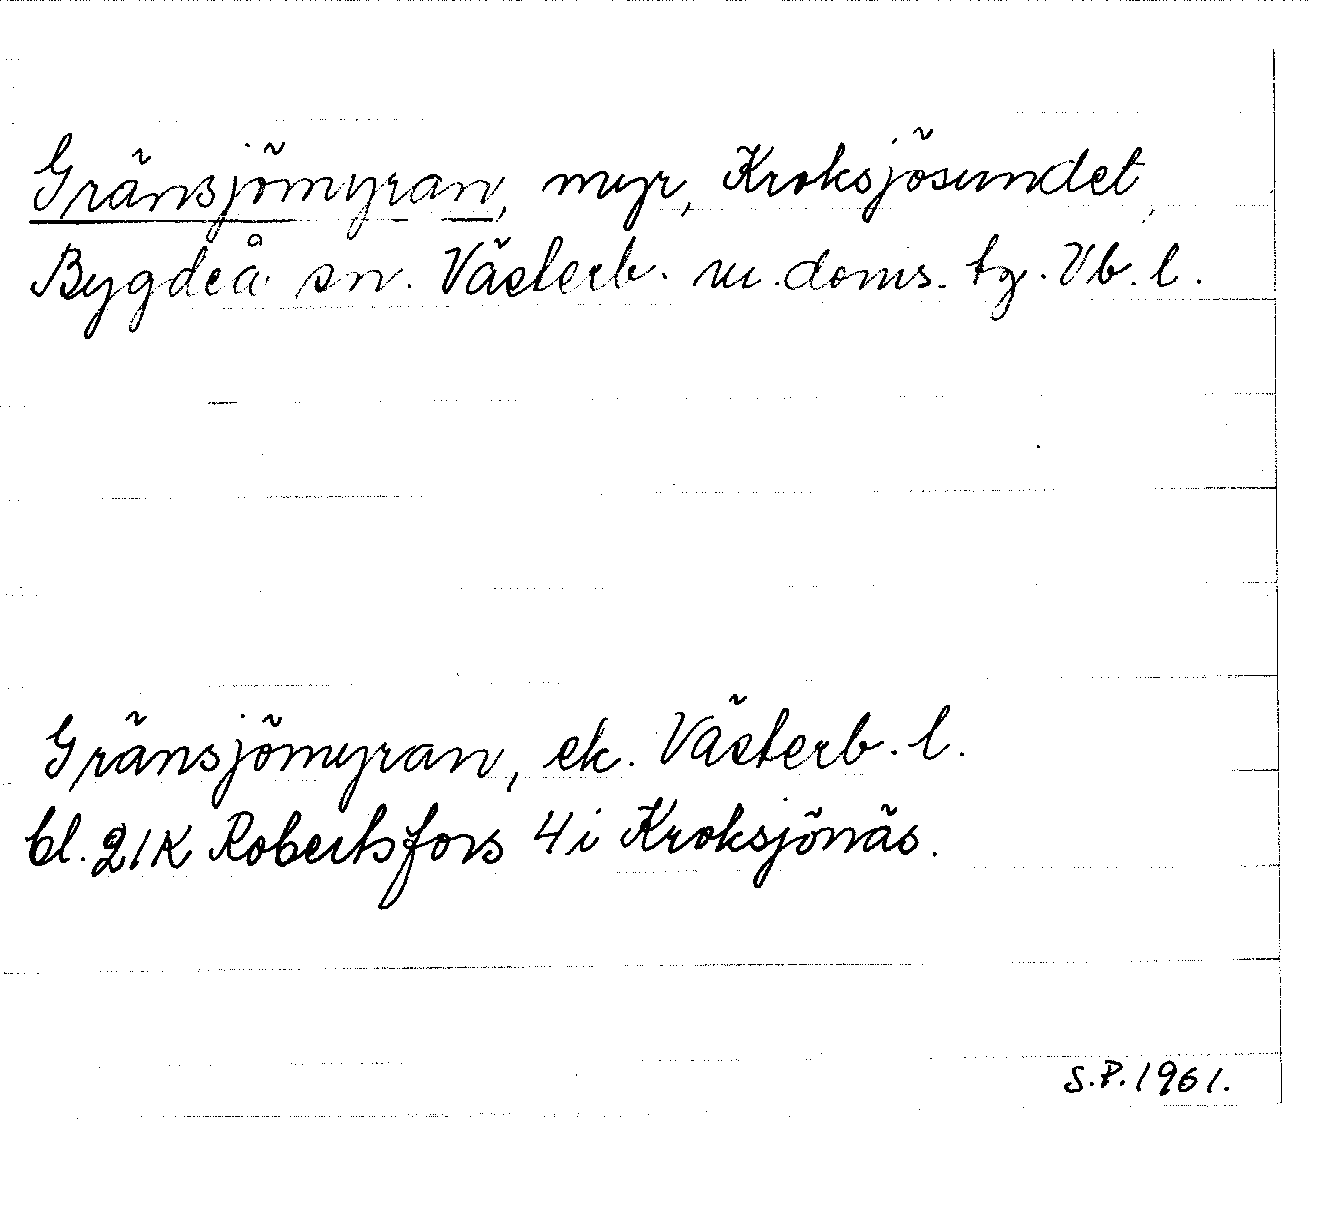 Gränsjömyran, myr, Kroksjösundet,
Bygdeå sn. Västerb. m. doms. tg. Vb. l.
Gränsjömyran, ek. Västerb. l.
bl. 21K Robertsfors 4i Kroksjönäs.
S.P. 1961.